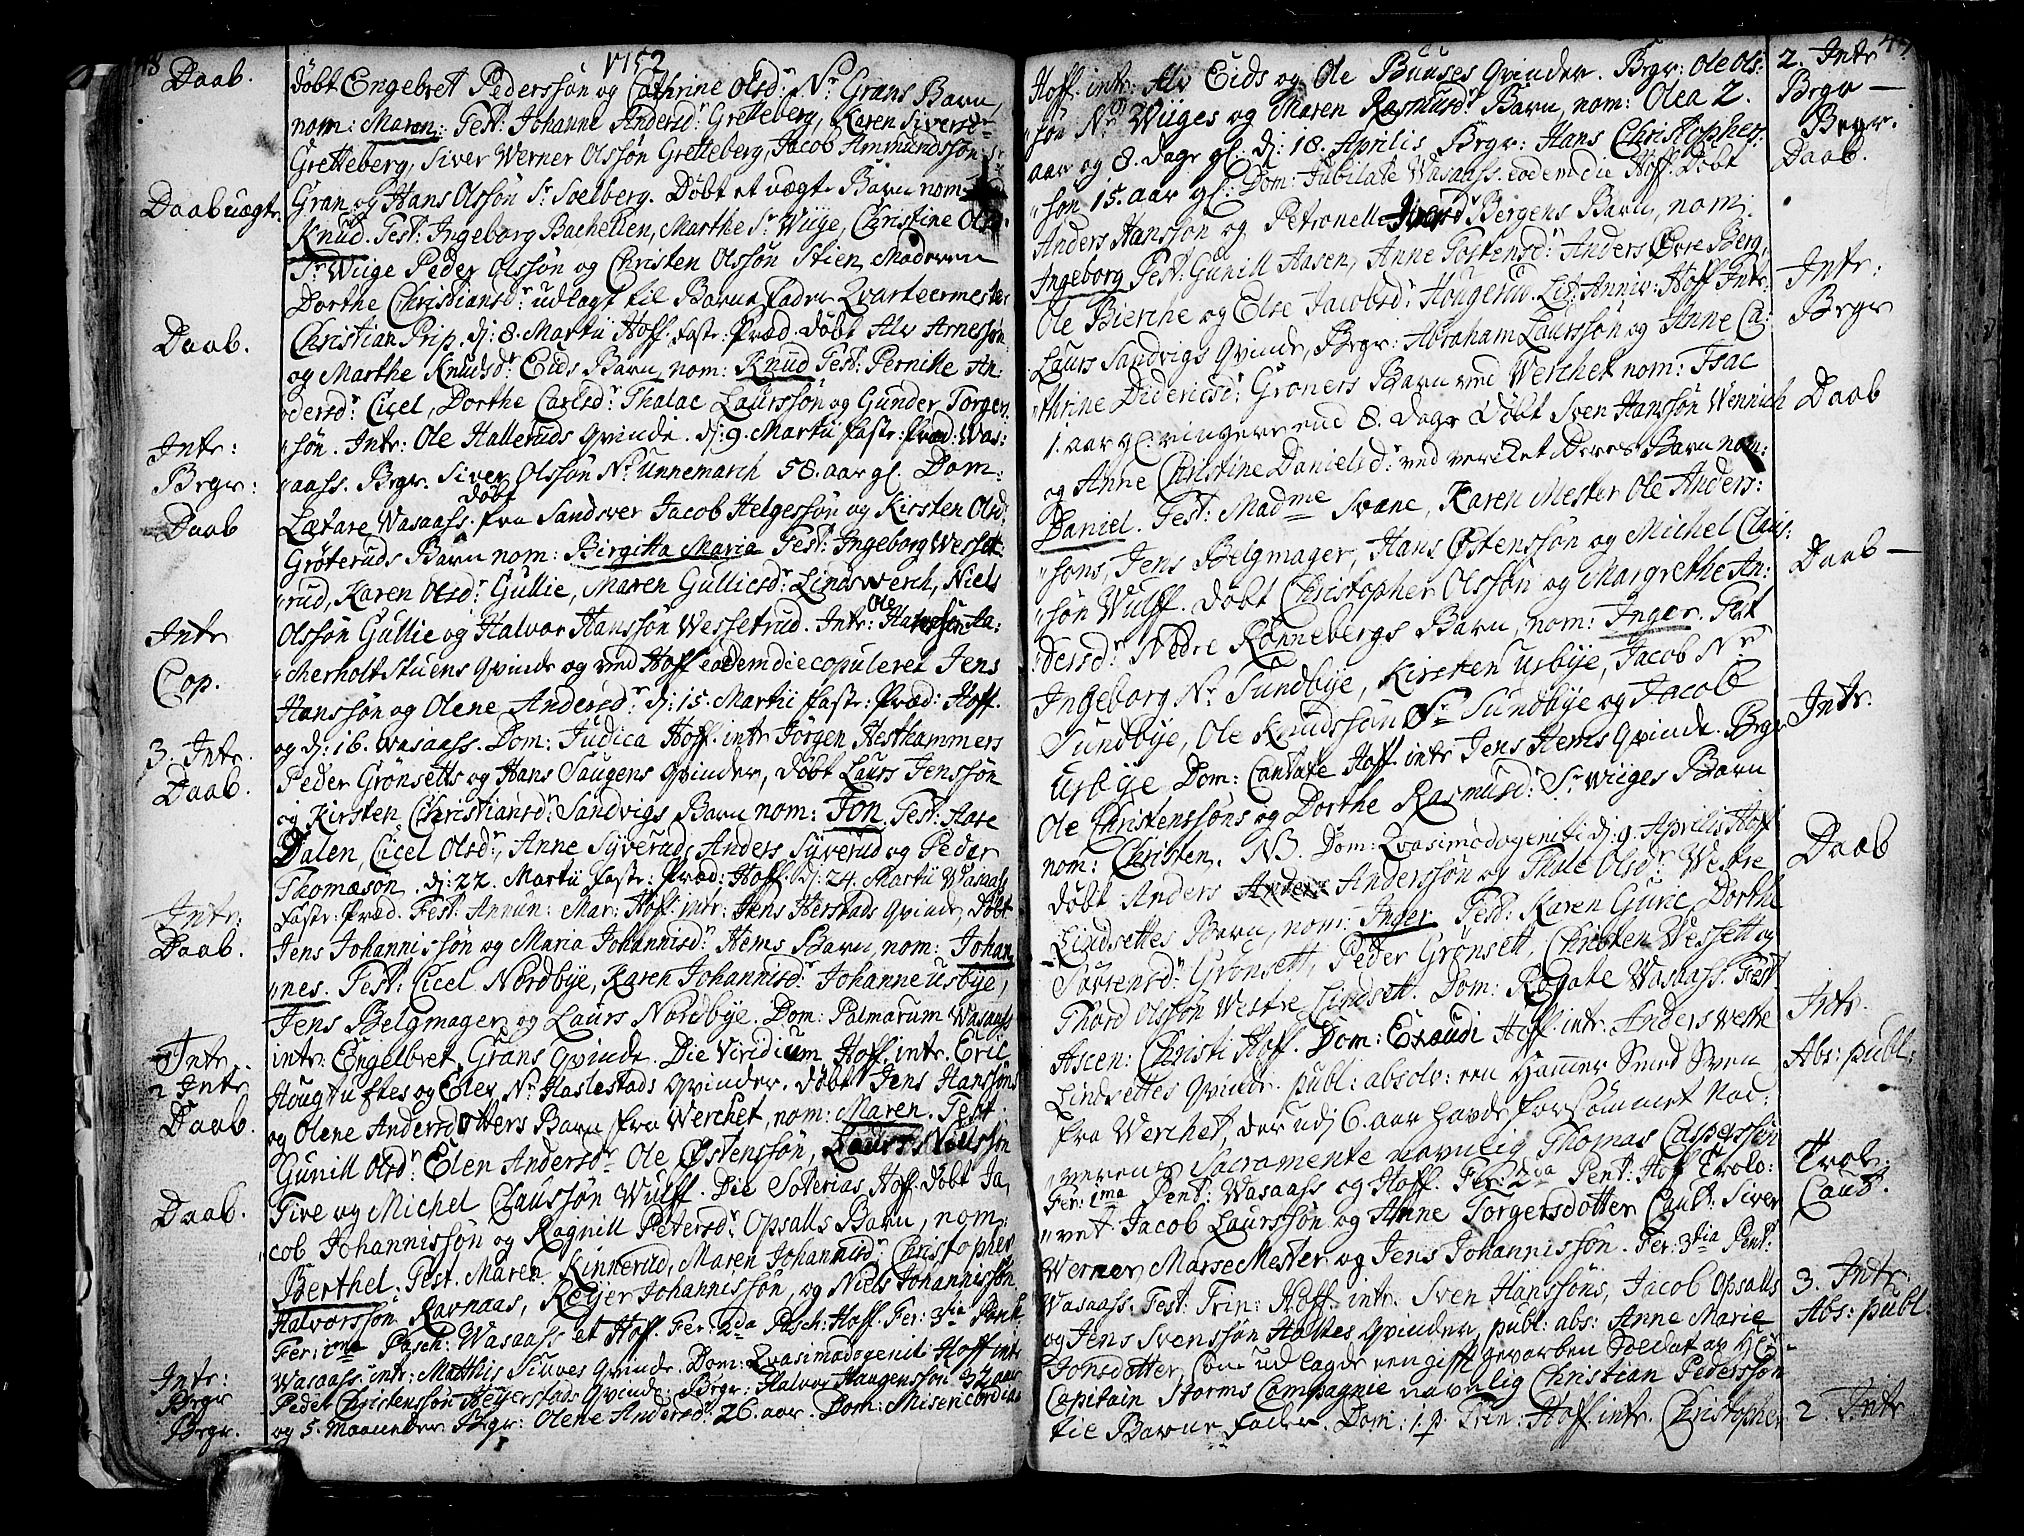 48
1752
Daab.
døbt Engebret Pederssøn og Cathrine Olsdr. Nr. Grans Barn,
nom: Maren. Test: Johanne Andersdr. Gretteberg, Karen Siversdr.
Gretteberg, Siver Werner Olssøn Gretteberg, Jacob Ammundssøn
Daab uægte.
Gran og Hans Olssøn Sr. Soelberg. Døbt et uægte Barn nom:
Knud. Test: Ingeborg Bachelien, Marthe Sr. Wiige, Christine Olsdr.
Sr. Wiige Peder Olssøn og Christen Olssøn Stien, Moderen
Dorthe Christiansdr. udlagt til Barne fader Qvarteermester
Daab.
Christian Prip. dj: 8. Martii Hoff. faste: Præd. døbt Alv Arnessøn
og Marthe Knudsdr. Eids Barn, nom: Knud Test: Pernille An-
dersdr. Cicel, Dorthe Carlsdr. Thalac Laurssøn og Gunder Torger-
Intr:
søn. Intr: Ole Halleruds Qvinde. dj: 9. Martii faste: Præd: Was-
Brgr:
aass. Brgr. Siver Olssøn Nr. Unnemarch 58. aar gl. Dom:
Daab
Lætare Wasaass. døbt fra Sandsver Jacob Helgessøn og Kirsten Olsdr.
Grøteruds Barn nom: Birgitta Maria Test: Ingeborg Wesset-
rud, Karen Olsdr. Gullie, Maren Gulliesdr. Lindswerch, Niels
Intr
Olssøn Gullie og Halvor Hanssøn Wessetrud. Intr: Ole Ha-
Cop.
merholt Stuens Qvinde og ved Hoff eodem die copuleret Jens
Hanssøn og Olene Andersdr. dj: 15. Martii faste: Præd: Hoff.
3. Intr.
og dj: 16. Wasaass. Dom: Judica Hoff. intr Jørgen Hesthammers
Daab.
Peder Grønsetts og Hans Saugens Qvinder, døbt Laurs Jenssøn
og Kirsten Christiansdr. Sandvigs Barn nom: Jon. Test: Aase
Dalen, Cicel Olsdr., Anne Syverud, Anders Syverud og Peder
Thomæsøn. dj: 22. Martii faste: Præd: Hoff. dj: 24. Martii Wasaass
Intr:
faste: Præd. Fest: Annun: Mar: Hoff. intr: Jens Herstads Qvinde, døbt
Daab.
Jens Johannissøn og Maria Johannisdr. Hems Barn, nom: Johan
nes. Test: Cicel Nordbye, Karen Johannisdr. Johanne Usbye,
Jens Belgmager og Laurs Nordbye. Dom: Palmarum Wasaass
Intr.
intr: Engelbret Grans Qvinde. Die Viridium Hoff. intr. Eric
2 Intr
Hougtuftes og Elev Nr. Haslestads Qvinder. døbt Jens Hanssøn
Daab.
og Olene Andersdotters Barn fra Werchet, nom: Maren. Test:
Gunill Olsdr. Elen Andersdr. Ole Østenssøn,
Tire og Michel Claussøn Wulff. Die Soterias Hoff. døbt Ja-
Daab.
cob Johannissøn og Ragnill Petersdr. Opsalls Barn, nom:
Berthel. Test. Maren Kinnerud, Maren Johannisdr. Christopher
Halvorssøn Ravnaas, Reijer Johannissøn, og Niels Johannissøn.
Fer: 1ma Pasch: Wasaass et Hoff. Fer: 2da Pasch: Hoff. Fer: 3tia
Intr:
Wasaass. intr: Matthis Stuves Qvinde. Dom: Qvasimodogenit Hoff intr
Brgr
Peder Christenssøn Heyerstads Qvinde. Brgr: Halvor Haagenssøn 32 aar
Brgr.
og 5. Maaneder Brgr: Olene Andersdr. 26. aar. Dom: Misericordias
2. Intr
Hoff. intr: Alv Eids og Ole Buuses Qvinder. Brgr: Ole Ols-
Brgr
søn Nr. Wiiges og Maren Rasmusdr. Barn, nom: Olea 2.
Brgr.
aar og 8. dage gl. dj: 18. Aprilis Brgr: Hans Christophers-
Daab.
søn 15. aar gl. Dom: Jubilate Wasaass. eodem die Hoff. døbt
Anders Hanssøn og Petronelle Iversdr. Bergens Barn, nom:
Ingeborg Test: Gunill Aasen, Anne Tostensdr. Anders Øvre Berg,
Intr:
Ole Bierche og Else Jacobsdr. Hougerud. Let: Anniv: Hoff Intr:
Brgr
Laurs Sandvigs Qvinde, Brgr: Abraham Laurssøn og Anne Ca-
thrine Didericsdr. Groners Barn ved Werchet nom: Isac
Daab
1. aar gl. ringere end 8. dage døbt Sven Hanssøn Wennich
og Anne Christine Danielsdr. ved verchet deres Barn nom:
Daniel. Test: Madme Svane, Karen Mester Ole Anders-
søns, Jens Belgmager, Hans Østenssøn og Michel Claus-
Daab
søn Wulff. døbt Christopher Olssøn og Margrethe An-
dersdr. Nedre Rønnebergs Barn, nom: Inger. Test
Ingeborg Nr. Sundbye, Kirsten Usbye, Jacob Nr.
Intr.
Sundbye, Ole Knudssøn Sr. Sundbye og Jacob
Usbye Dom: Cantate Hoff. intr Jens Hems Qvinde. Brgr
Ole Christenssøns og Dorthe Rasmusdr. Sr. Wiiges Barn
nom: Christen. NB. Dom: Qvasimodogeniti dj. 9. Aprilis Hoff
Daab
døbt Anders Anderssøn og Thale Olsdr. Westre
Lindsettes Barn, nom: Inger Test: Karen Gurie, Dorthe
Saxensdr. Grønsett, Peder Grønsett, Christen Wessett og
Thord Olssøn Westre Lindsett. Dom: Rogate Wasaass. Fest
Intr.
Ascen: Christi Hoff. Dom: Exaudi Hoff. intr. Anders Westre
Abs: publ:
Lindsettes Qvinde. publ: absolv: een Hammer Smed Sven
fra Werchet, der udj 6. aar havde forsømmet Nad-
verens Sacramente navnlig Thomas Casperssøn
Trol.
Fer: 1ma Pent: Wasaass og Hoff. Fer: 2da Pent: Hoff Trolo-
Caut.
vet Jacob Laurssøn og Anne Torgersdotter Caut: Siver
Werner Masse Mester og Jens Johannissøn. Fer: 3tia Pent:
3. Intr
Wasaass. Fest: Trin: Hoff. intr. Sven Hanssøns, Jacob Opsalls
Abs: publ.
og Jens Svenssøn Holtes Qvinder, publ: abs: Anne Marie
Jonsdotter, som udlagde een gift gevorben Soldat av Hr
Capitain Storms Compagnie navnlig Christian Pederssøn
2. Intr
til Barne fader. Dom: 1. p. Trin: Hoff. intr. Christopher